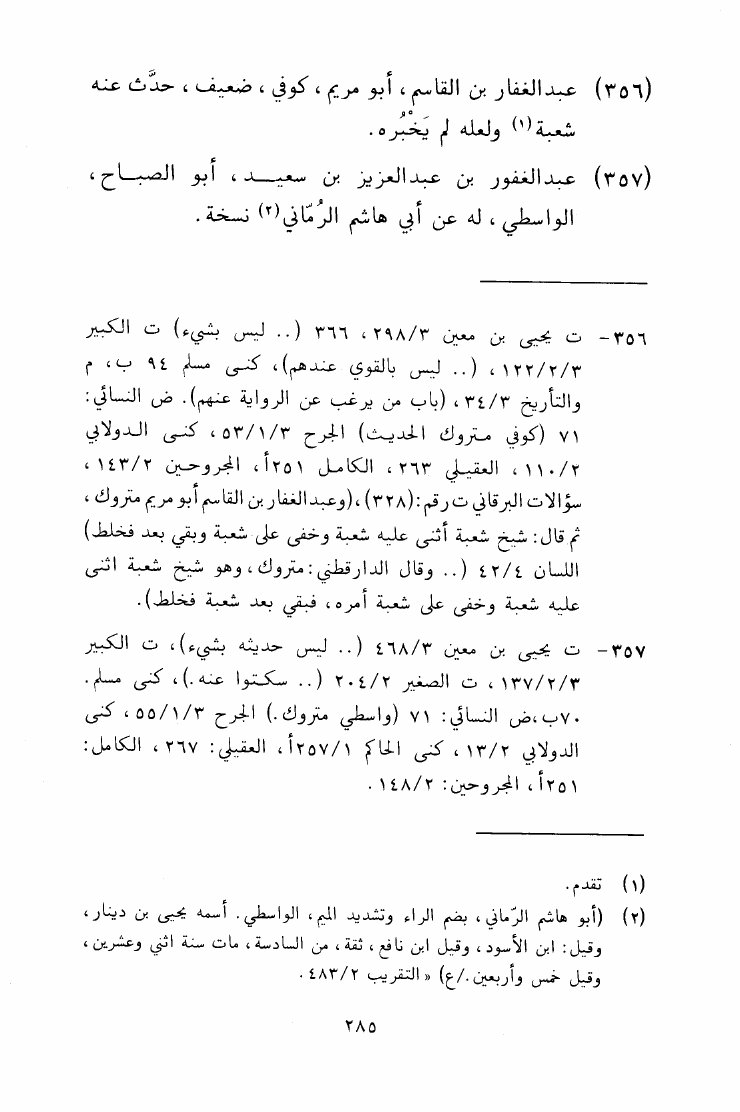 (٣٥٦) عبدالغفار بن القاسم، أبو مريم، كوفي، ضعيف، حدَّث عنه
شعبة(١) ولعله لم يَخْبُره.
(٣٥٧) عبدالغفور بن عبدالعزيز بن سعيــد، أبو الصباح،
الواسطي، له عن أبي هاشم الرُمّاني(٢) نسخة.
٣٥٦- ت يحيى بن معين ٢٩٨/٣، ٣٦٦ (.. ليس بشيء) ت الكبير
١٢٢/٢/٣، (.. ليس بالقوي عندهم)، كنى مسلم ٩٤ ب، م
والتأريخ ٣٤/٣، (باب من يرغب عن الرواية عنهم). ض النسائي:
٧١ (كوفي متروك الحديث) الجرح ٥٣/١/٣، كنى الدولابي
١١٠/٢، العقيلي ٢٦٣، الكامل ٢٥١أ، المجروحين ١٤٣/٢،
سؤالات البرقاني ت رقم: (٣٢٨)، (وعبدالغفار بن القاسم أبو مريم متروك،
ثم قال: شيخ شعبة أثنى عليه شعبة وخفى على شعبة وبقي بعد فخلط)
اللسان ٤٢/٤ (.. وقال الدارقطني: متروك، وهو شيخ شعبة اثنى
عليه شعبة وخفى على شعبة أمره، فبقي بعد شعبة فخلط).
٣٥٧- ت يحيى بن معين ٤٦٨/٣ (.. ليس حديثه بشيء)، ت الكبير
١٣٧/٢/٣، ت الصغير ٢٠٤/٢ (.. سكتوا عنه.)، كنى مسلم.
٧٠ب، ض النسائي: ٧١ (واسطي متروك.) الجرح ٥٥/١/٣، كنى
الدولابي ١٣/٢، كنى الحاكم ٢٥٧/١أ، العقيلي: ٢٦٧، الكامل:
٢٥١أ، المجروحين: ١٤٨/٢.
(١) تقدم.
(٢) (أبو هاشم الرّماني، بضم الراء وتشديد الميم، الواسطي. أسمه يحيى بن دينار،
وقيل: ابن الأسود، وقيل ابن نافع، ثقة، من السادسة، مات سنة اثني وعشرين،
وقيل خمس وأربعين./ع) «التقريب ٤٨٣/٢.
٢٨٥